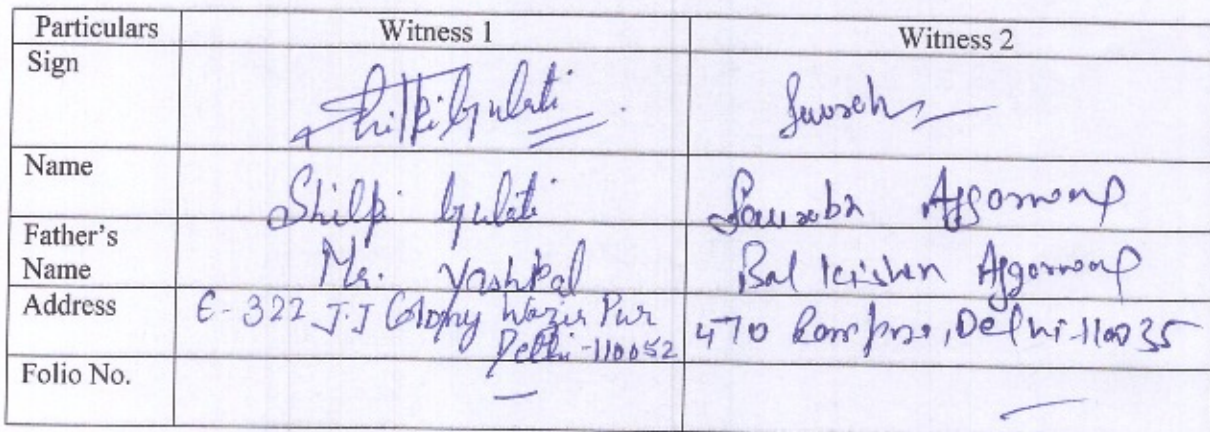 Particulars Witness 1 Witness 2
Sign Shilpi Gulati Saurabh
Name Shilpi Gulati Saurabh Aggarwal
Father's
Name Mr. Yashpal Bal Krishan Aggarwal
Address E-322 J.J Colony Wazir Pur 470 Rampura, Delhi-110035
Delhi-110052
Folio No. — —